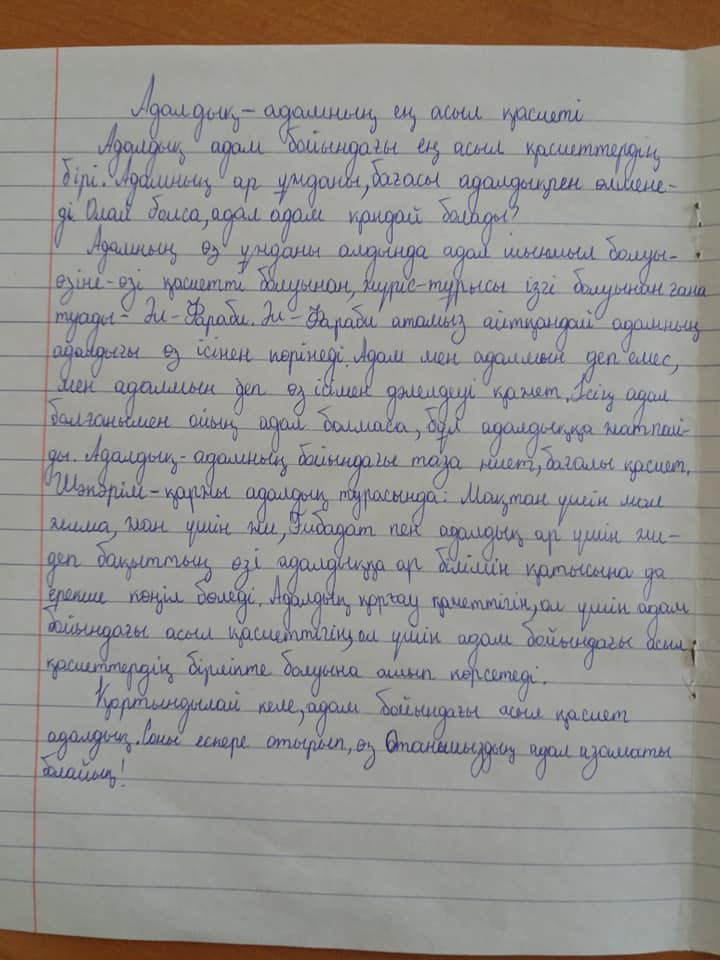 Адалдық - адамның ең асыл қасиеті
Адалдық адам бойындағы ең асыл қасиеттердің
бірі. Адамның ар ұжданы, бағасы адалдықпен өлшене-
ді. Олай болса, адал адам қандай болады?
Адамның өз ұжданы алдында адал шыншыл болуы-
өзіне-өзі қасиетті болуынан, жүріс-тұрысы ізгі болуынан ғана
туады - Әл-Фараби. Әл-Фараби атамыз айтқандай адамның
адалдығы өз ісінен көрінеді. Адам мен адалмын деп емес,
мен адалмын деп өз ісімен дәлелдеуі қажет. Ісің адал
болғанымен ойың адал болмаса, бұл адалдыққа жатпай-
ды. Адалдық - адамның бойындағы таза ниет, бағалы қасиет.
Шәкәрім - қарғы адалдық турасында: Мақтан үшін мал
жима, жан үшін жи, Ғибадат пен адалдық ар үшін жи-
деп бақыттың өзі адалдыққа ар білімін қатысына да
ерекше көңіл бөледі. Адалдық қорғау қажеттігін, ол үшін адам
бойындағы асыл қасиеттігің, ол үшін адам бойындағы асыл
қасиеттердің бірлікте болуына ашып көрсетеді.
Қортындылай келе, адам бойындағы асыл қасиет
адалдық. Соны ескере отырып, өз Отанымыздың адал азаматы
болайық!